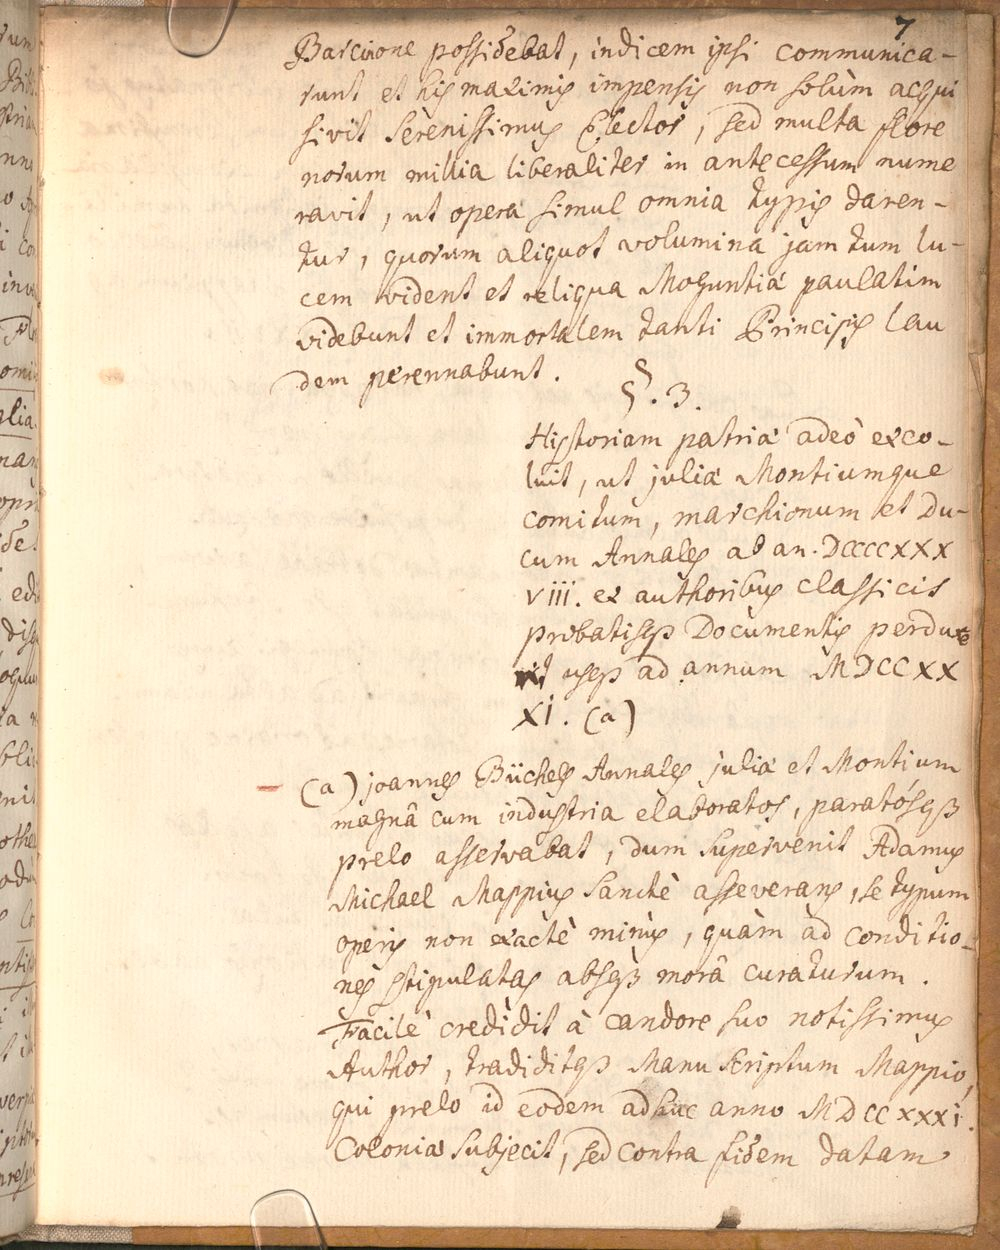 7
Barcinone possidebat, indicem ipsi communica-
runt et his maximis impensis non solùm acqui
sivit Serenissimus Elector, sed multa flore
norum millia liberaliter in antecessum nume
ravit, ut opera simul omnia typis daren-
tur, quorum aliquot volumina jam tum lu-
cem vident et reliqua Moguntiæ paulatim
videbunt et immortalem tanti Principis lau
dem perennabunt.
§. 3.
Historiam patriæ adeò exco-
luit, ut juliæ Montiumque
comitum, marchionum et Du-
cum Annales ab an. DCCCCXXX
VIII. ex authoribus classicis
probatisqꝫ Documentis perdux
it usqꝫ ad annum MDCCXX
XI. (a)
(a) joannes Büches Annales juliæ et Montium
magnâ cum industria elaboratos, paratósqꝫ
prelo asservabat, dum supervenit Adamus
Michael Mappius sanctè asseverans, se typum
operis non exactè minùs, quàm ad conditio-
nes stipulatas absqꝫ morâ curaturum.
Facilè credidit à candore suo notissimus
Author, tradiditqꝫ Manu scriptum Mappio,
qui prelo id eodem adhuc anno MDCCXXXI.
Coloniæ subjecit, sed contra fidem datam